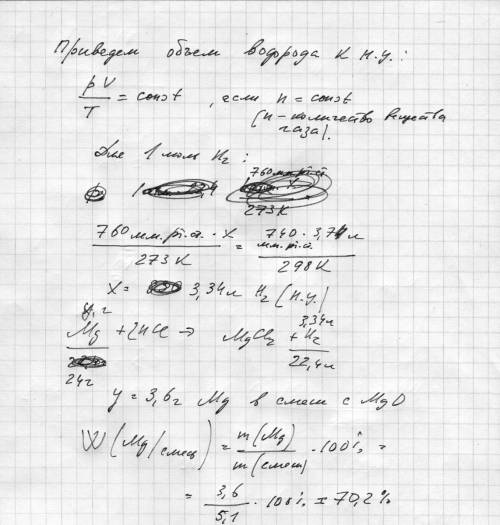 Приведем объем водорода к н.у.:
pV/T = const, если n = const
(n - количество вещества
газа).
Для 1 моль H₂:
760 мм.рт.ст.
273 К
760 мм.рт.ст. · X / 273 К = 740 мм.рт.ст. · 3,74 л / 298 К
X = 3,34 л H₂ (н.у.)
y, г 3,34 л
Mg + 2HCl → MgCl₂ + H₂
24 г 22,4 л
y = 3,6 г Mg в смеси с MgO
W (Mg/смеси) = m(Mg) / m(смеси) · 100% =
= 3,6 / 5,1 · 100% = 70,2%